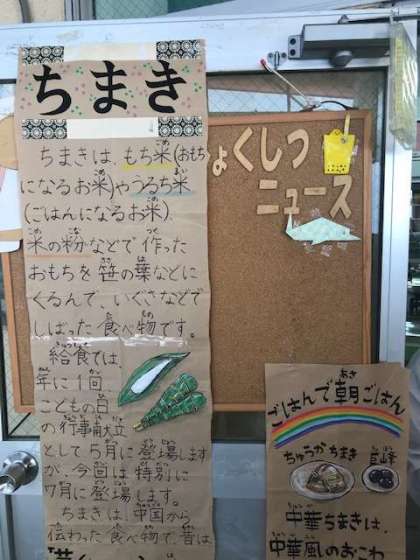 ちまき
ちまきは、もち米(おもち
になるお米)やうるち米
(ごはんになるお米)、
米の粉などで作った
おもちを笹の葉などに
くるんで、いぐさなどで
しばった食べ物です。
給食では、
年に1回、
こどもの日
の行事献立
として5月に登場します
が、今回は特別に
7月に登場します。
ちまきは、中国から
伝わった食べ物で、昔は
ょくしつ
ニュース
ごはんで朝ごはん
ちゅうかちまき
中華ちまきは、
中華風のおこわ